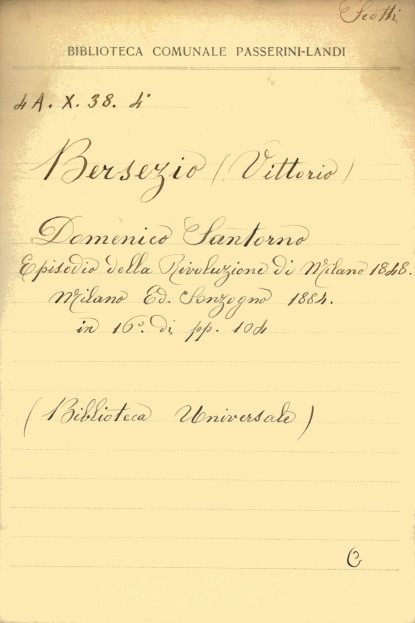 Scotti
BIBLIOTECA COMUNALE PASSERINI-LANDI
4A. X. 38. 4°
Bersezio (Vittorio)
Domenico Santorno
Episodio della Rivoluzione di Milano 1848.
Milano Ed. Sonzogno 1884.
in 16°. di pp. 104
(Biblioteca Universale)
C